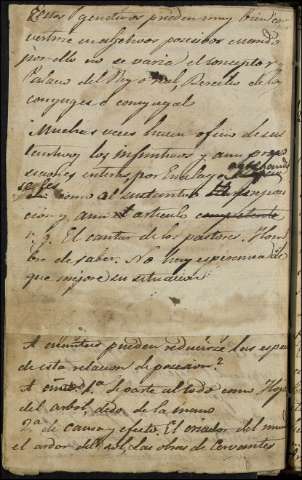 Estos genitivos pueden muy bien con
vertirse en adjetivos posesivos cuando
por ello no se varia el concepto v.g.
Palacio del Rey o real, Derecho de los
conyuges o conyugal
Muchas veces hacen oficio de sus
tantivos los infinitivos y aun
oraciones enteras por
como al sustantivo la preposi
cion y aun el articulo competente
v. g. El cantar de los pastores. Hom
bre de saber. No hay esperanza de
que mejore su situacion
A cuantas pueden reducirse las especies
de esta relacion de posesion?
A cinco. 1.ª de parte al todo como Hoja
del arbol, dedo de la mano
2.ª de causa y efecto. El criador del mundo
el ardor del sol, las obras de Cervantes